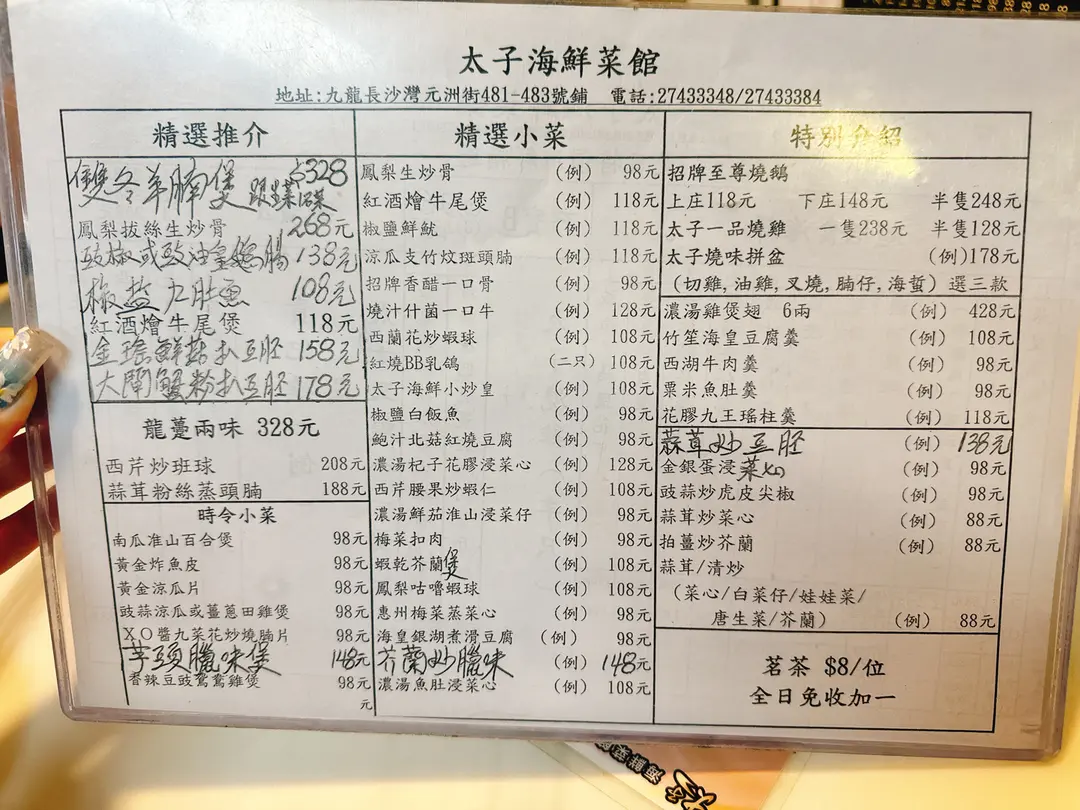 太子海鮮菜館
地址:九龍長沙灣元洲街481-483號鋪 電話:27433348/27433384
精選推介
雙冬羊腩煲 $328
跟生菜1碟
鳳梨拔絲生炒骨 268元
豉椒或豉油皇鵝腸 138元
椒盐九肚魚 108元
紅酒燴牛尾煲 118元
金瑤鮮菇扒豆胚 158元
大閘蟹粉扒豆胚 178元
龍躉兩味 328元
西芹炒班球 208元
蒜茸粉絲蒸頭腩 188元
時令小菜
南瓜准山百合煲 98元
黃金炸魚皮 98元
黃金涼瓜片 98元
豉蒜涼瓜或薑蔥田雞煲 98元
XO醬九菜花炒燒腩片 98元
芋頭臘味煲 148元
香辣豆豉鴛鴦雞煲 98元
元
精選小菜
鳳梨生炒骨 (例) 98元
紅酒燴牛尾煲 (例) 118元
椒鹽鮮魷 (例) 118元
涼瓜支竹炆斑頭腩 (例) 118元
招牌香醋一口骨 (例) 98元
燒汁什菌一口牛 (例) 128元
西蘭花炒蝦球 (例) 108元
紅燒BB乳鴿 (二只) 108元
太子海鮮小炒皇 (例) 108元
椒鹽白飯魚 (例) 98元
鮑汁北菇紅燒豆腐 (例) 98元
濃湯杞子花膠浸菜心 (例) 128元
西芹腰果炒蝦仁 (例) 108元
濃湯鮮茄淮山浸菜仔 (例) 98元
梅菜扣肉 (例) 98元
蝦乾芥蘭煲 (例) 108元
鳳梨咕嚕蝦球 (例) 108元
惠州梅菜蒸菜心 (例) 98元
海皇銀湖煮滑豆腐 (例) 98元
芥蘭炒臘味 (例) 148元
濃湯魚肚浸菜心 (例) 108元
特別介紹
招牌至尊燒鵝
上庄118元 下庄148元 半隻248元
太子一品燒雞 一隻238元 半隻128元
太子燒味拼盆 (例)178元
(切雞, 油雞, 叉燒, 腩仔, 海蜇) 選三款
濃湯雞煲翅 6兩 (例) 428元
竹笙海皇豆腐羹 (例) 108元
西湖牛肉羹 (例) 98元
粟米魚肚羹 (例) 98元
花膠九王瑤柱羹 (例) 118元
蒜茸炒豆胚 (例) 138元
金銀蛋浸菜心 (例) 98元
豉蒜炒虎皮尖椒 (例) 98元
蒜茸炒菜心 (例) 88元
拍薑炒芥蘭 (例) 88元
蒜茸/清炒
(菜心/白菜仔/娃娃菜/
唐生菜/芥蘭) (例) 88元
茗茶 $8/位
全日免收加一